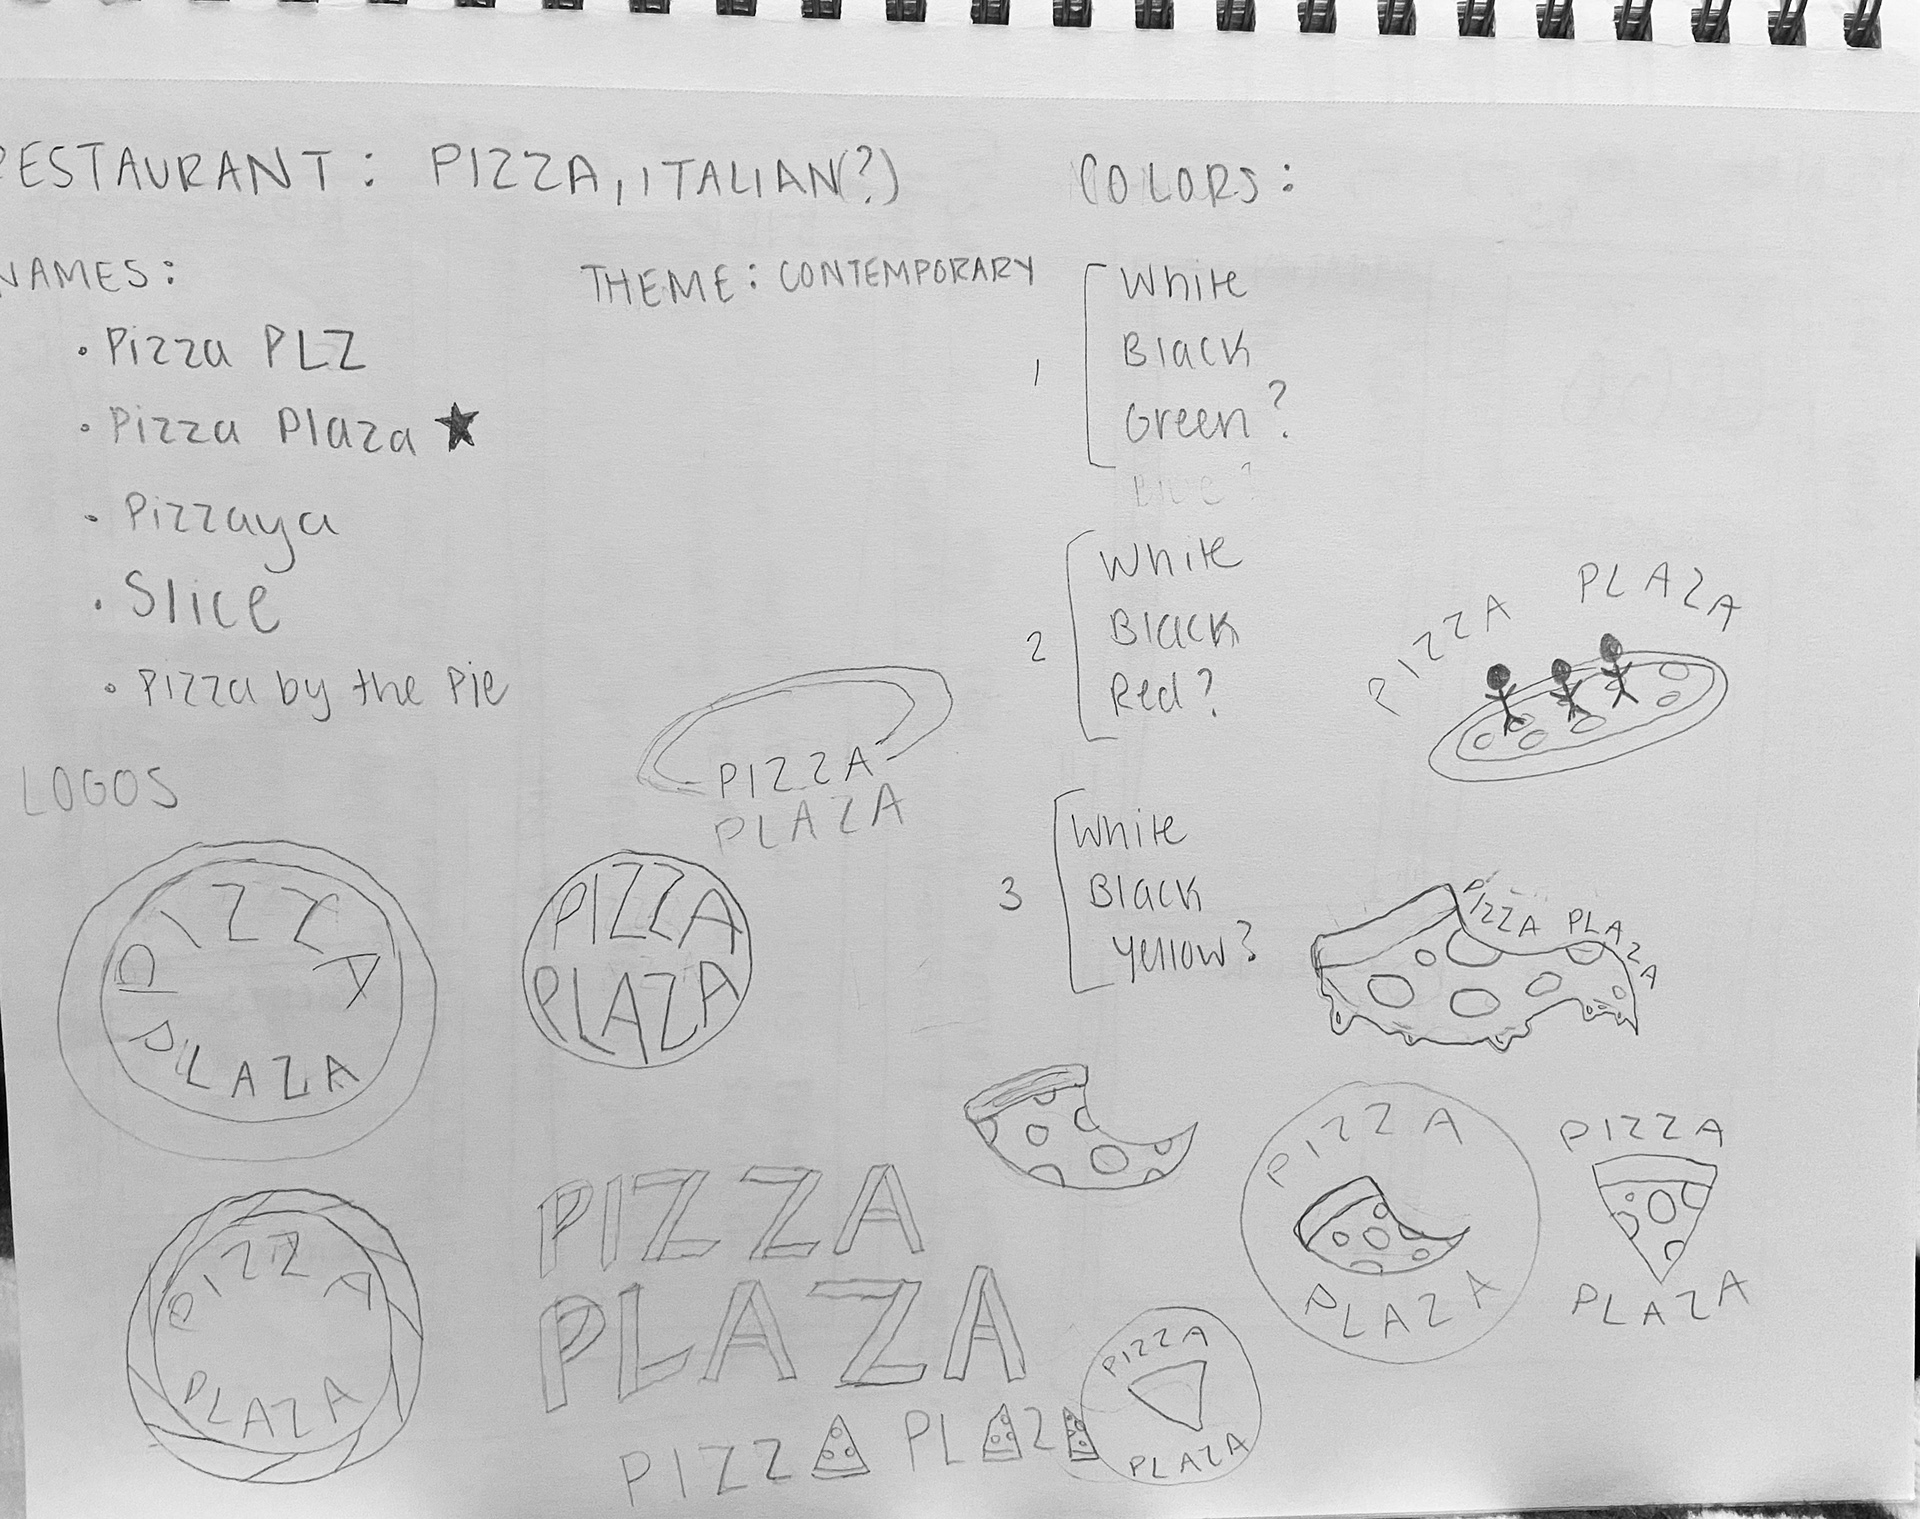 RESTAURANT: PIZZA, ITALIAN(?)
NAMES:
• Pizza PLZ
• Pizza Plaza ★
• Pizzaya
• Slice
• Pizza by the Pie
THEME: CONTEMPORARY
COLORS:
1
White
Black
Green?
Blue?
2
White
Black
Red?
3
White
Black
Yellow?
LOGOS
PIZZA
PLAZA
PIZZA
PLAZA
PIZZA
PLAZA
PIZZA PLAZA
PIZZA PLAZA
PIZZA
PLAZA
PIZZA
PLAZA
PIZZ PL Z
PIZZA
PLAZA
PIZZA
PLAZA
PIZZA
PLAZA